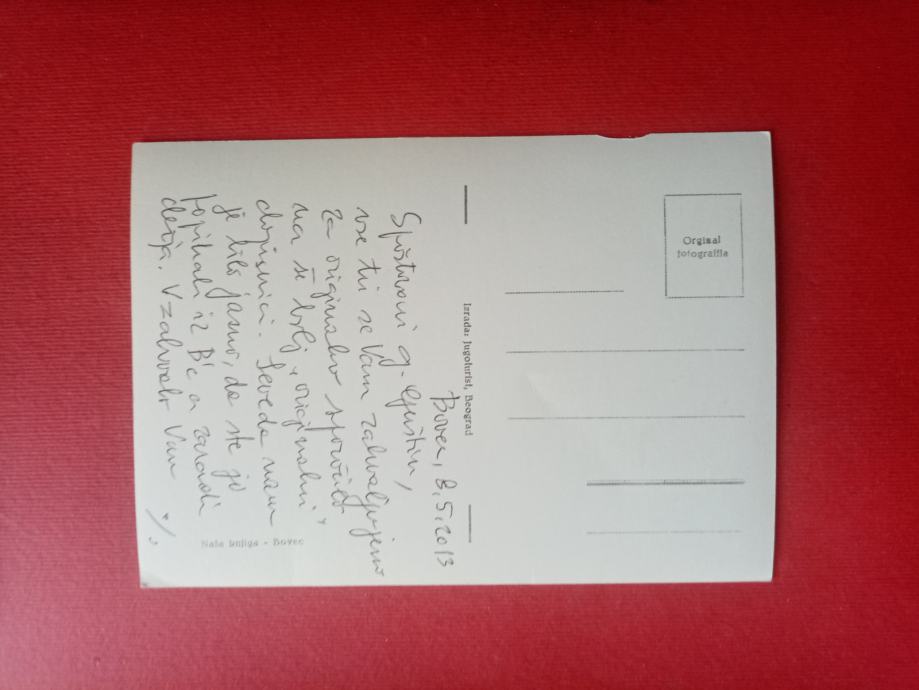 Bovec, 8.5.2013
Spoštovani g. Guštin,
vse tri se Vam zahvaljujemo
za originalno sporočilo
na še bolj "originalni"
dopisnici. Seveda nam
je bilo jasno, da ste jo
popihali iz Bc a zaradi
dežja. V zahvalo Vam
./.
Naša knjiga - Bovec
Izrada: Jugoturist, Beograd
Orginal
fotografija